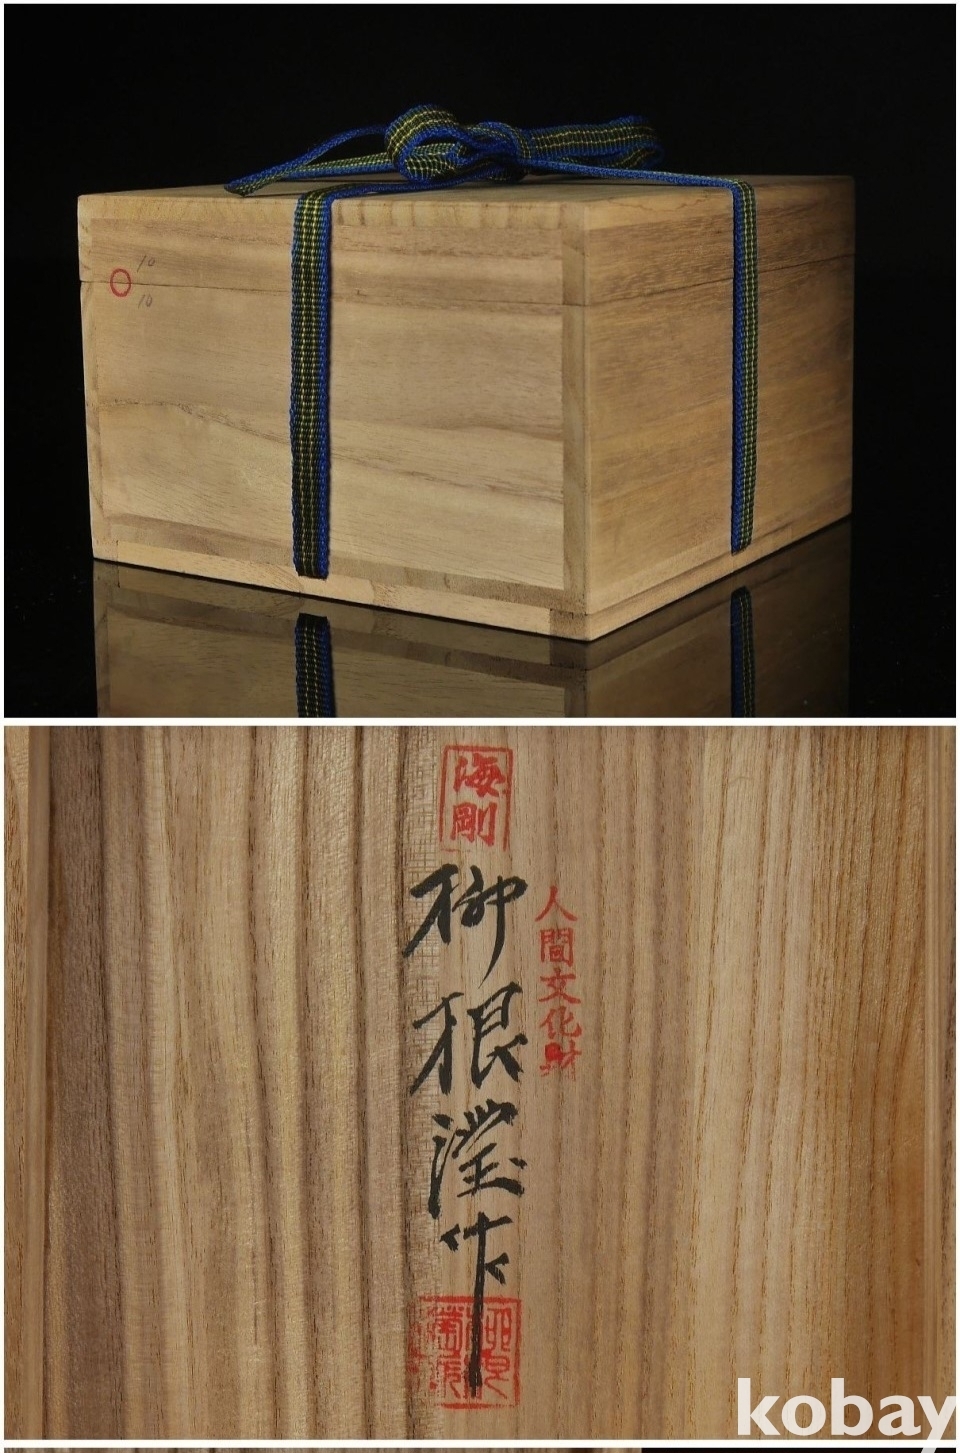 10
10
海剛
人間文化財
柳根瀅作
kobay